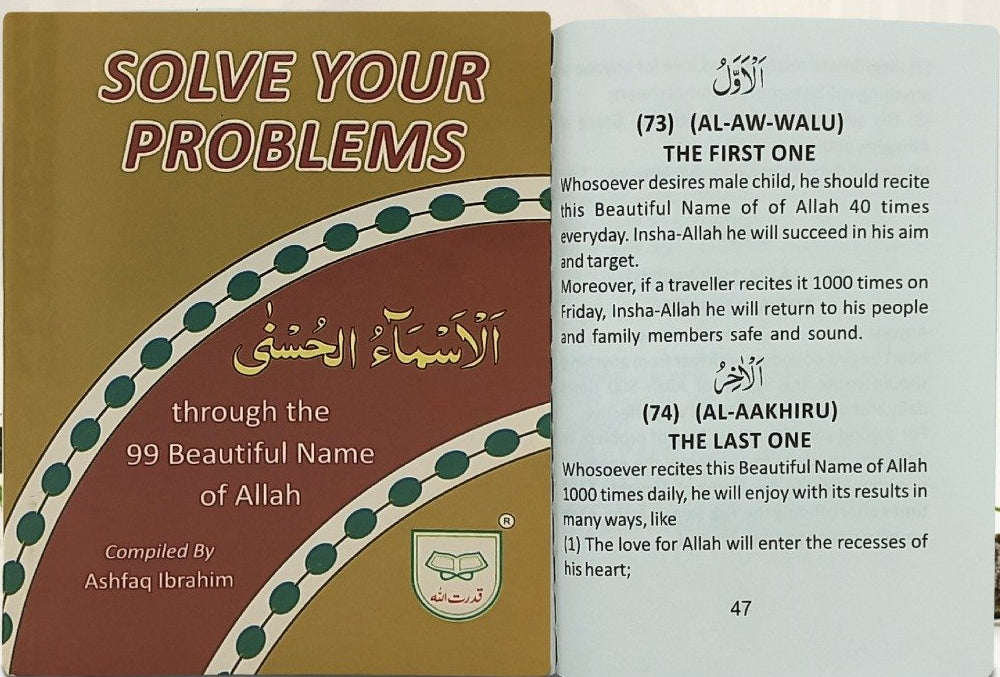 SOLVE YOUR
PROBLEMS
اَلْاَسْمَآءُ الحُسْنٰى
through the
99 Beautiful Name
of Allah
Compiled By
Ashfaq Ibrahim
®
قدرت الله
اَلْاَوَّلُ
(73) (AL-AW-WALU)
THE FIRST ONE
Whosoever desires male child, he should recite
this Beautiful Name of of Allah 40 times
everyday. Insha-Allah he will succeed in his aim
and target.
Moreover, if a traveller recites it 1000 times on
Friday, Insha-Allah he will return to his people
and family members safe and sound.
اَلْاٰخِرُ
(74) (AL-AAKHIRU)
THE LAST ONE
Whosoever recites this Beautiful Name of Allah
1000 times daily, he will enjoy with its results in
many ways, like
(1) The love for Allah will enter the recesses of
his heart;
47